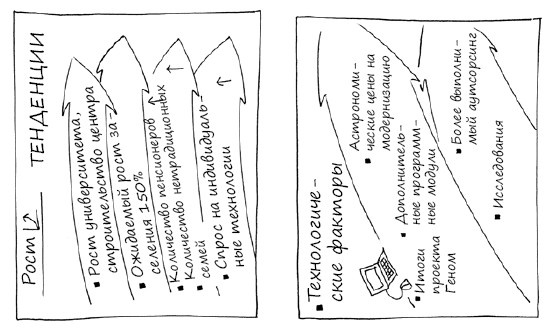 Рост
ТЕНДЕНЦИИ
▪ Рост университета,
строительство центра
▪ Ожидаемый рост за-
селения 150%
▪ Количество пенсионеров
▪ Количество нетрадиционных
семей
▪ Спрос на индивидуаль-
ные технологии
▪ Технологиче-
ские факторы
▪ Астрономи-
ческие цены на
модернизацию
▪ Дополнитель-
ные программ-
ные модули
▪ Итоги
проекта
Геном
▪ Более выполни-
мый аутсорсинг
▪ Исследования